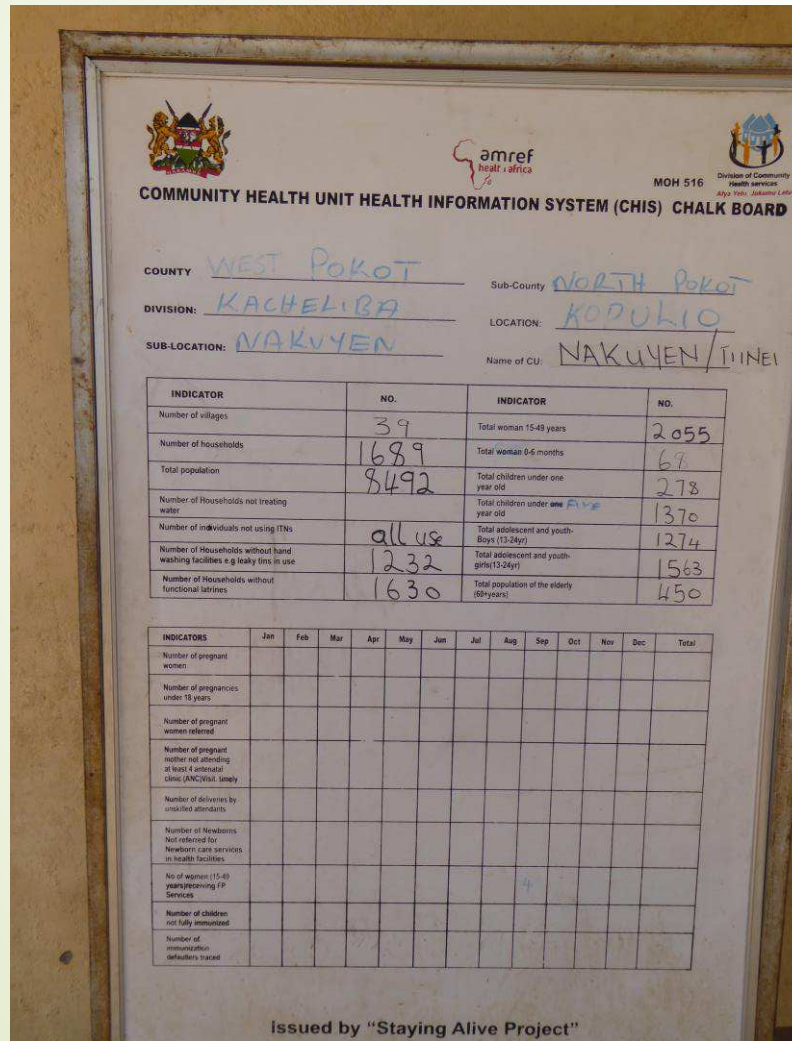 amref
health africa
MOH 516
Division of Community
Health services
Afya Yetu, Jukumu Letu
COMMUNITY HEALTH UNIT HEALTH INFORMATION SYSTEM (CHIS) CHALK BOARD
COUNTY WEST POKOT Sub-County NORTH POKOT
DIVISION: KACHELIBA LOCATION: KODULIO
SUB-LOCATION: NAKUYEN Name of CU: NAKUYEN/
INDICATOR NO. INDICATOR NO.
Number of villages 39 Total woman 15-49 years 2055
Number of households 1689 Total woman 0-6 months 68
Total population 8492 Total children under one year old 278
Number of Households not treating water Total children under one FIVE year old 1370
Number of individuals not using ITNs all use Total adolescent and youth- Boys (13-24yr) 1274
Number of Households without hand washing facilities e.g leaky tins in use 1232 Total adolescent and youth- girls(13-24yr) 1563
Number of Households without functional latrines 1630 Total population of the elderly (60+years) 450
INDICATORS Jan Feb Mar Apr May Jun Jul Aug Sep Oct Nov Dec Total
Number of pregnant
women
Number of pregnancies
under 18 years
Number of pregnant
women referred
Number of pregnant
mother not attending
at least 4 antenatal
clinic (ANC)Visit. timely
Number of deliveries by
unskilled attendants
Number of Newborns
Not referred for
Newborn care services
in health facilities
No of women (15-49
years)receiving FP 4
Services
Number of children
not fully immunized
Number of
immunization
defaulters traced
issued by "Staying Alive Project"